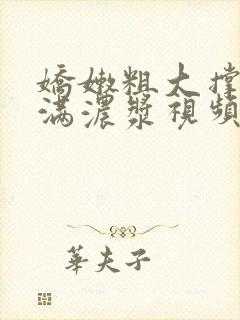 嬌嫩粗大撐
滿濃漿視頻
華夫子